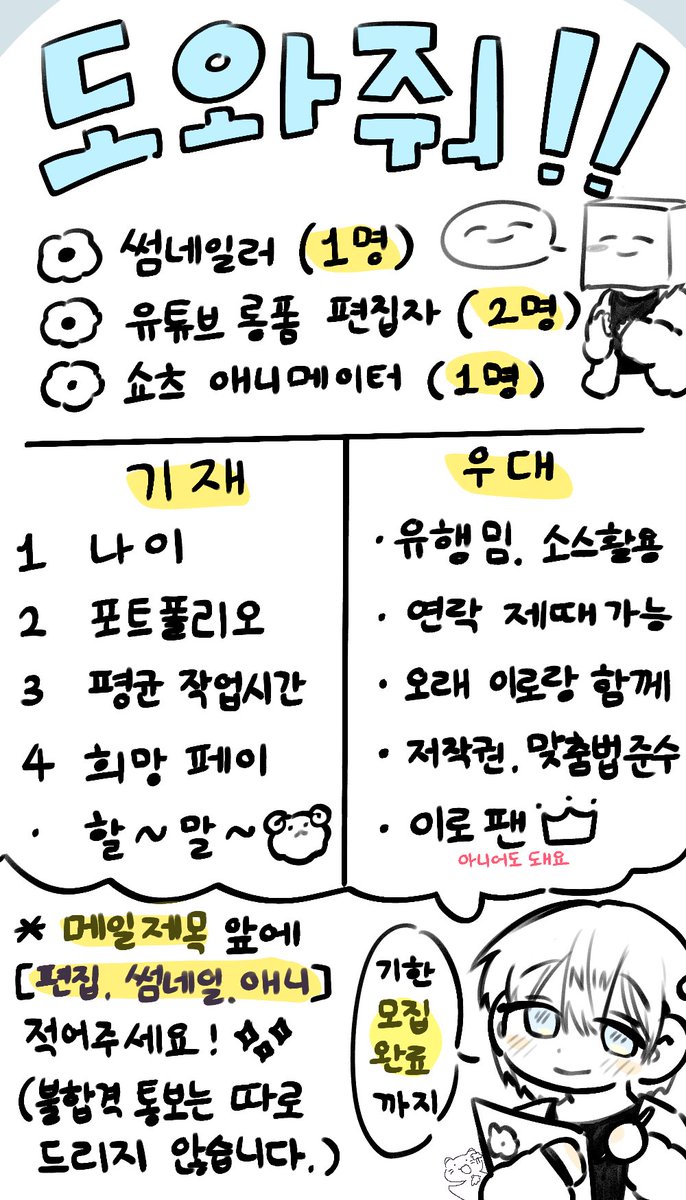 도와줘!!
썸네일러 (1명)
유튜브 롱폼 편집자 (2명)
쇼츠 애니메이터 (1명)
기재
1 나이
2 포트폴리오
3 평균 작업시간
4 희망 페이
· 할~말~
우대
· 유행 밈, 소스활용
· 연락 제때가능
· 오래 이로랑 함께
· 저작권, 맞춤법준수
· 이로 팬
아니어도 돼요
* 메일제목 앞에
[편집, 썸네일, 애니]
적어주세요!
(불합격 통보는 따로
드리지 않습니다.)
기한
모집
완료
까지